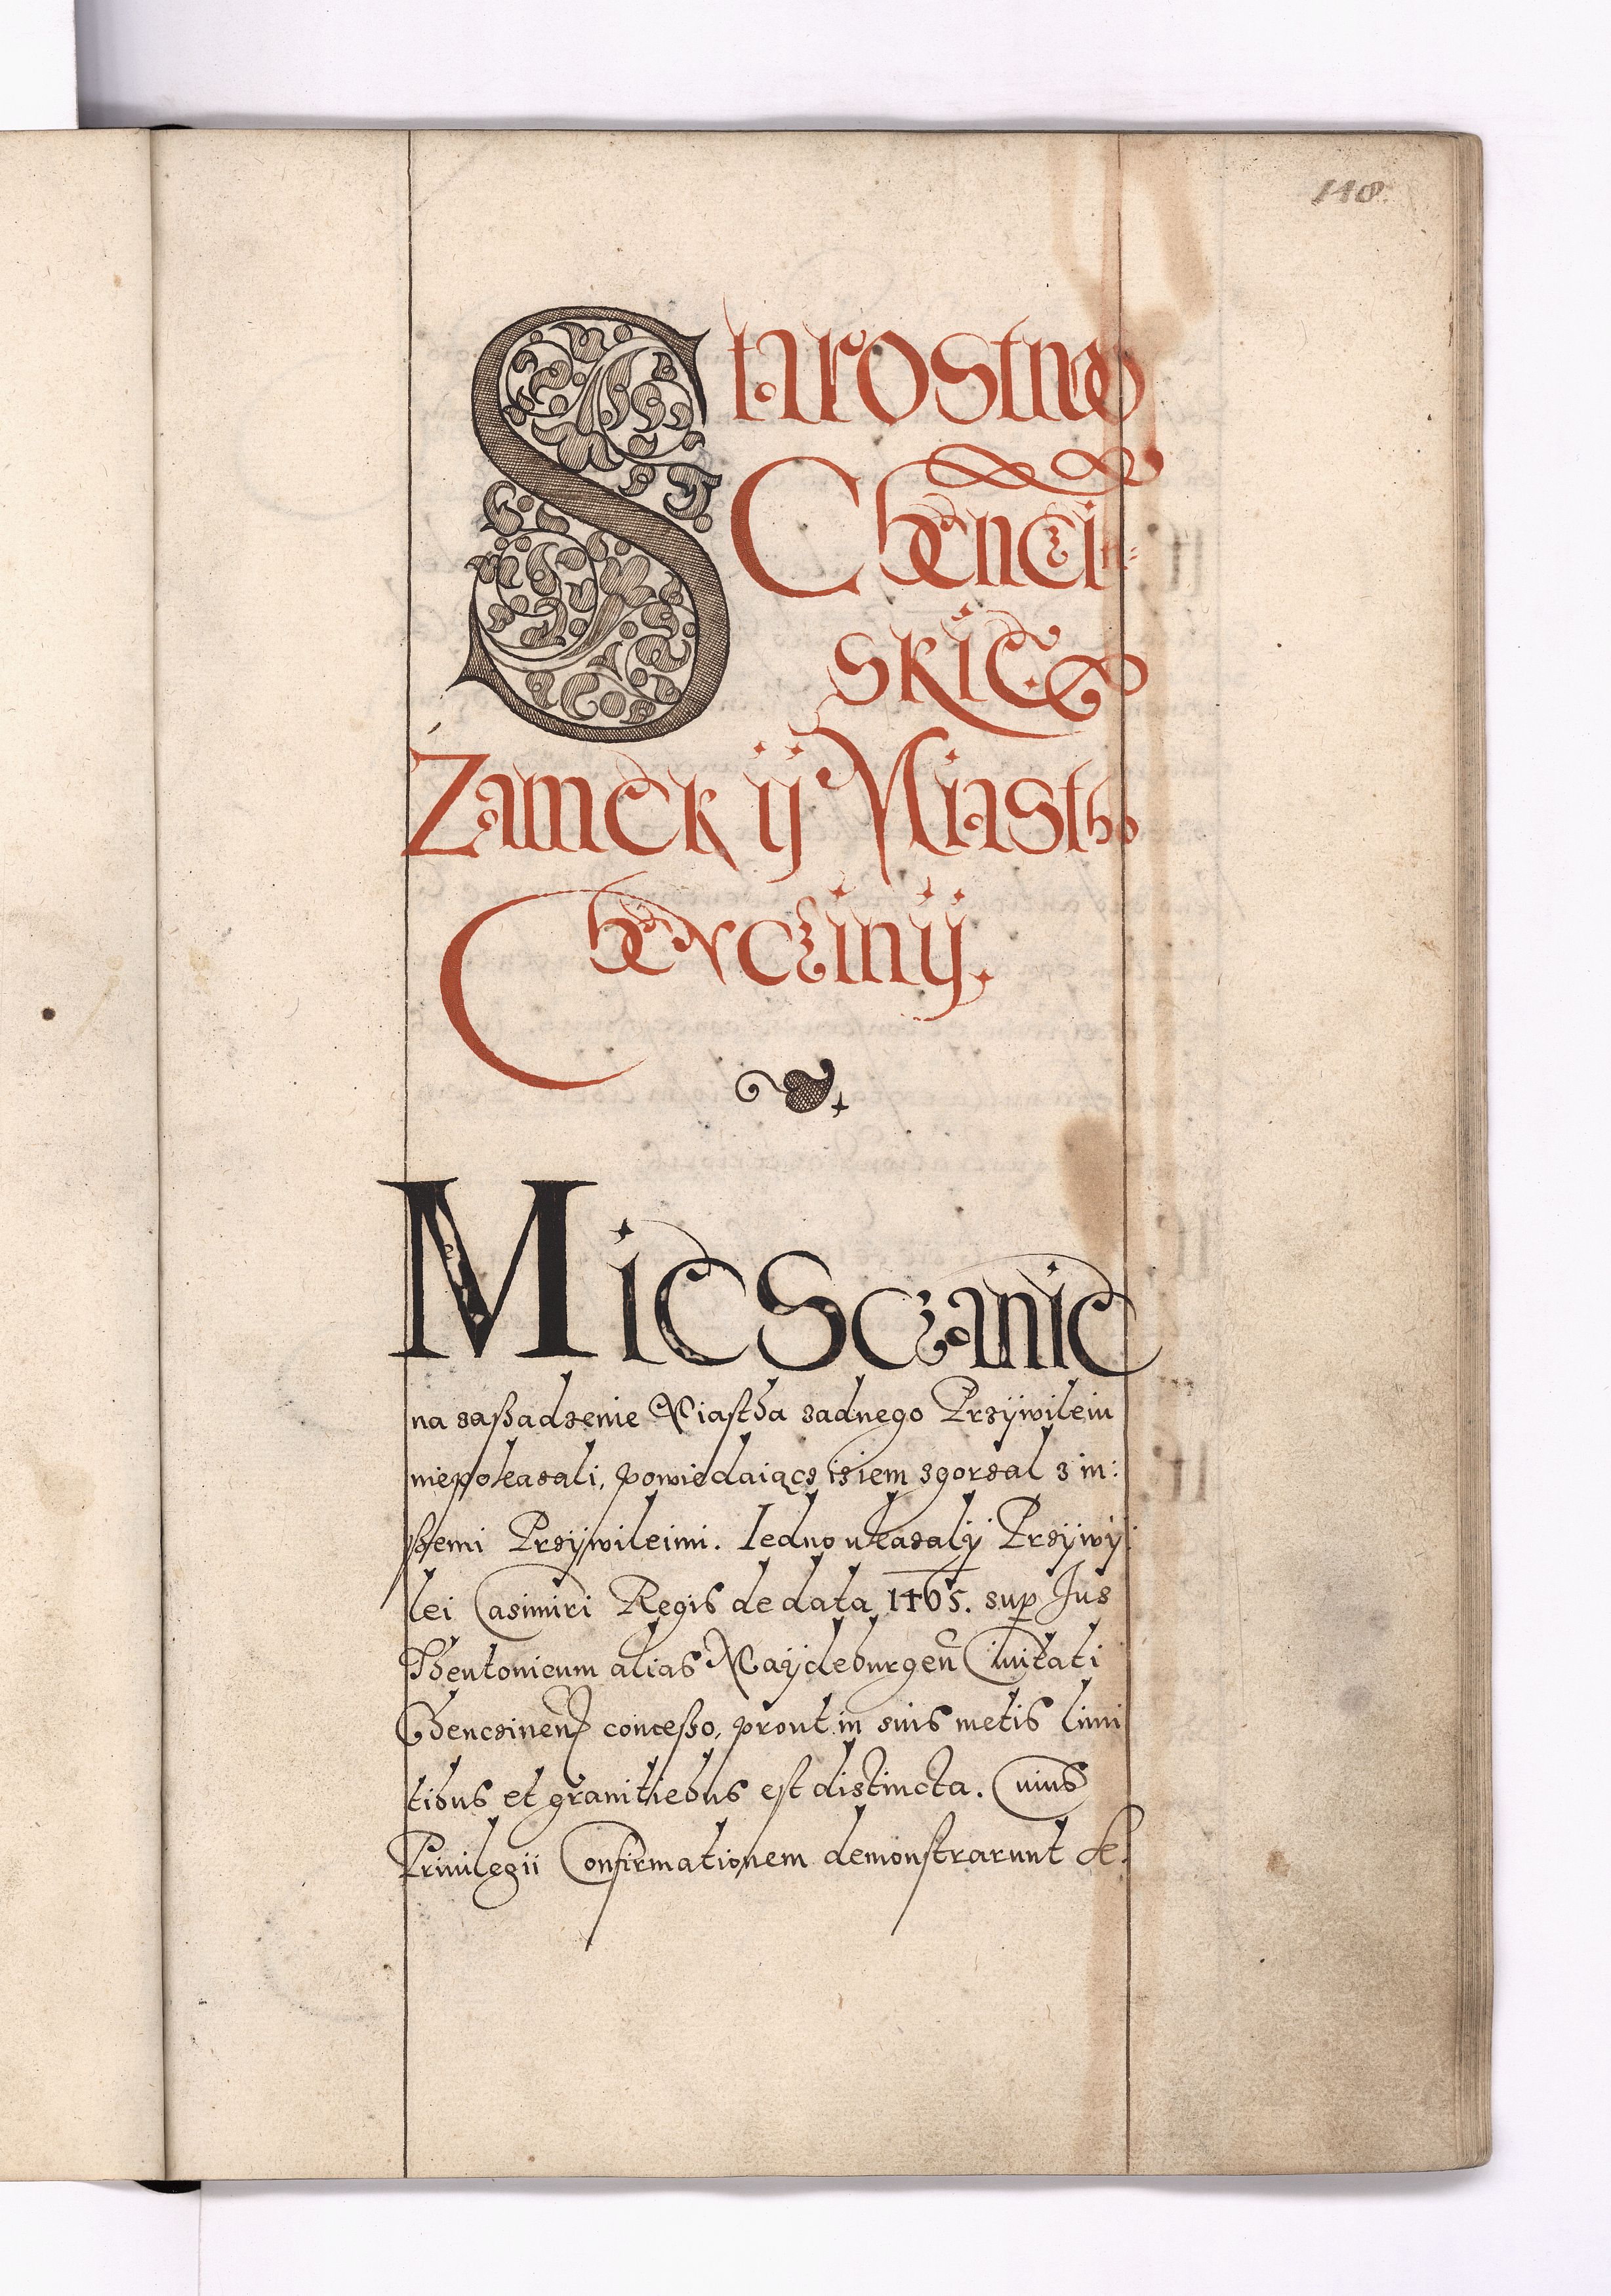 148
Starostwo
Chenci=
skie
Zamek ij Miastho
Chencziny.
Miesczanie
na zaßadzenie Miastha żadnego Przÿwileiu
niepokazali, powiedaiącz isiem zgorzal z in:
ßzemi Przÿwileimi. Iedno ukazalÿ Przÿwÿ
lei Casimiri Regis de data 1465. sup Jus
Theutonicum alias Maÿdeburgen̄ Ciuitati
Chencinen̄ conceßo, prout in suis metis limi
tibus et granitiebus est distincta. Cuius
Priuilegii Confirmationem demonstrarunt &c.